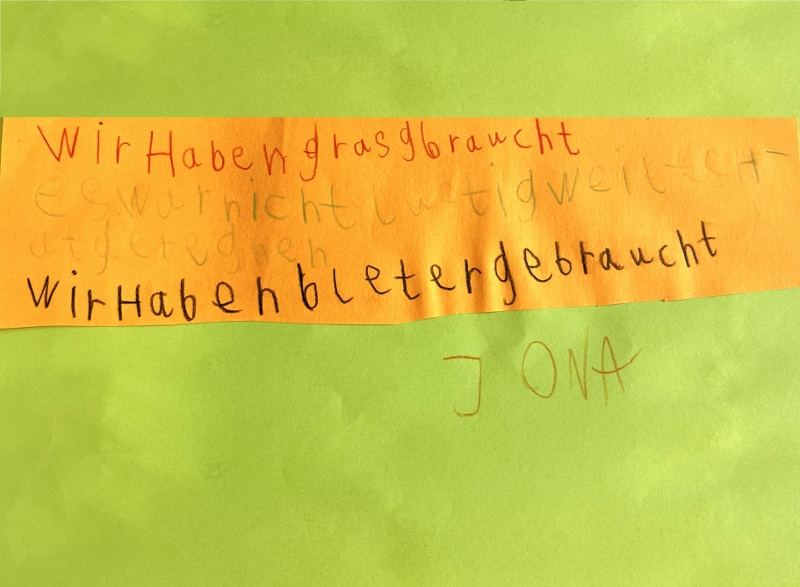 WirHabengrasgbraucht
eswarnichtlustigweilesH-
atgeregnen
wirHabenbletergebraucht
JONA